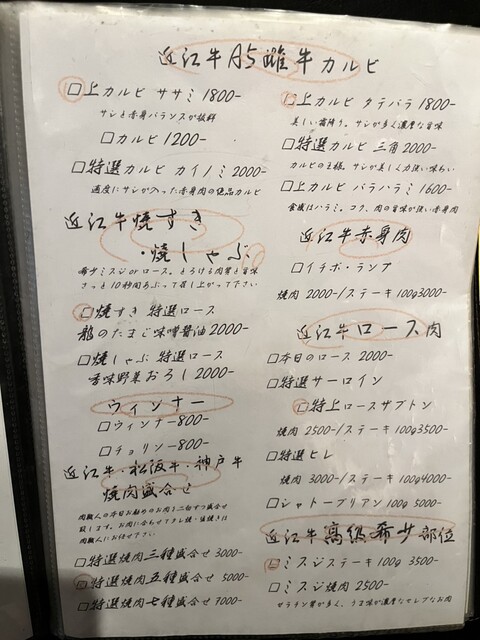 近江牛A5雌牛カルビ
□上カルビ ササミ 1800-
サシと赤身バランスが抜群
□カルビ 1200-
□特選カルビ カイノミ 2000-
適度にサシが入った赤身肉の絶品カルビ
近江牛焼すき
・焼しゃぶ
希少ミスジorロース。とろける肉質と旨味
さっと10秒間あぶって召し上がって下さい
□焼すき 特選ロース
龍のたまご味噌醤油 2000-
□焼しゃぶ 特選ロース
香味野菜おろし 2000-
ウィンナー
□ウィンナー 800-
□チョリソー 800-
近江牛・松阪牛・神戸牛
焼肉盛合せ
肉職人の本日お勧めのお肉を二切ずつ盛合せ
致します。お肉に合わせてタレ焼・塩焼きは
肉職人にお任せ下さい
□特選焼肉三種盛合せ 3000-
□特選焼肉五種盛合せ 5000-
□特選焼肉七種盛合せ 7000-
□上カルビ タテバラ 1800-
美しい霜降り。サシが多く濃厚な旨味
□特選カルビ 三角 2000-
カルビの王様。サシが美しく力強い味わい
□上カルビ バラハラミ 1600-
食感はハラミ。コク、肉の旨味が強い赤身肉
近江牛赤身肉
□イチボ・ランプ
焼肉 2000-/ステーキ 100g3000-
近江牛ロース肉
□本日のロース 2000-
□特選サーロイン
□特上ロースザブトン
焼肉 2500-/ステーキ 100g3500-
□特選ヒレ
焼肉 3000-/ステーキ 100g4000-
□シャトーブリアン 100g 5000-
近江牛高級希少部位
□ミスジステーキ 100g 3500-
□ミスジ焼肉 2500-
ゼラチン質が多く、うま味が濃厚なセレブなお肉